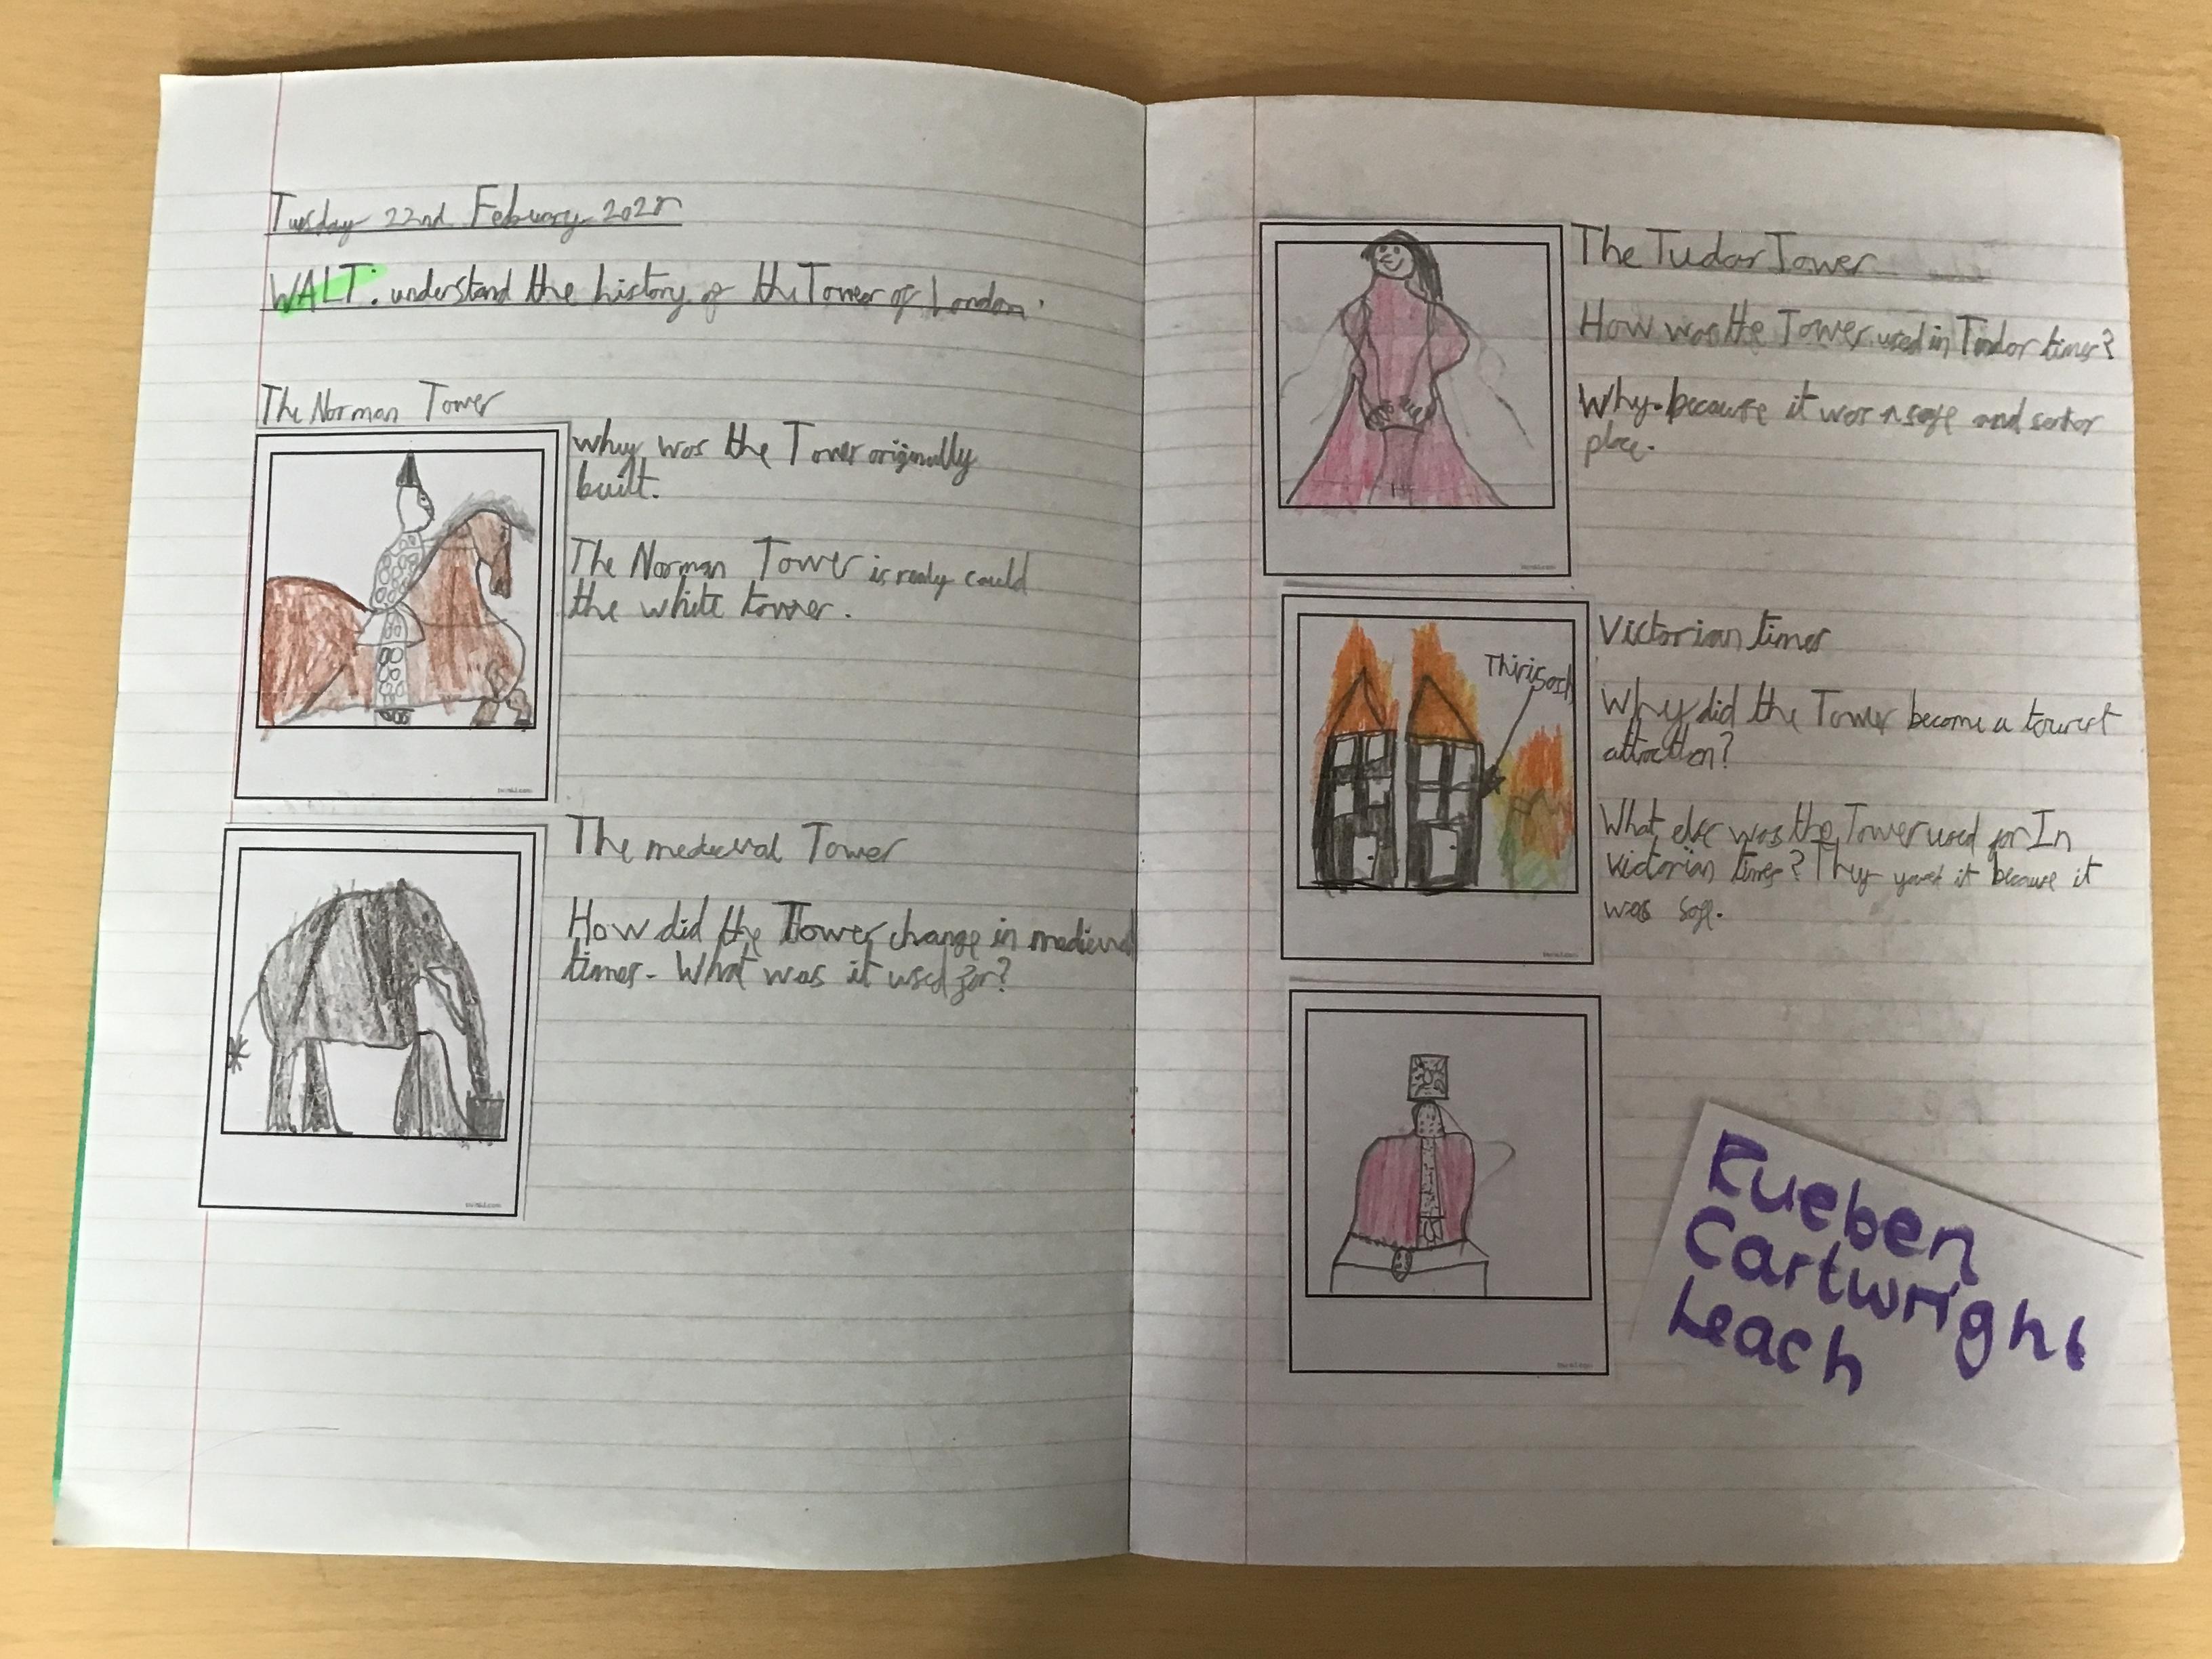 Tuesday 22nd Febuary
WALT: understand the history of the Tower of London.
The Norman Tower
why was the Tower originally
built.
The Norman Tower is realy could
the white tower.
The medieval Tower
How did the Tower change in medieval
times. What was it used for?
The Tudor Tower
How was the Tower used in Tudor times?
Why. because it was a safe and
place.
Victorian times
Why did the Tower become a tourist
attraction?
What else was the Tower used for In
victorian times? They it because it
was safe.
Rueben
Cartwright
Leach